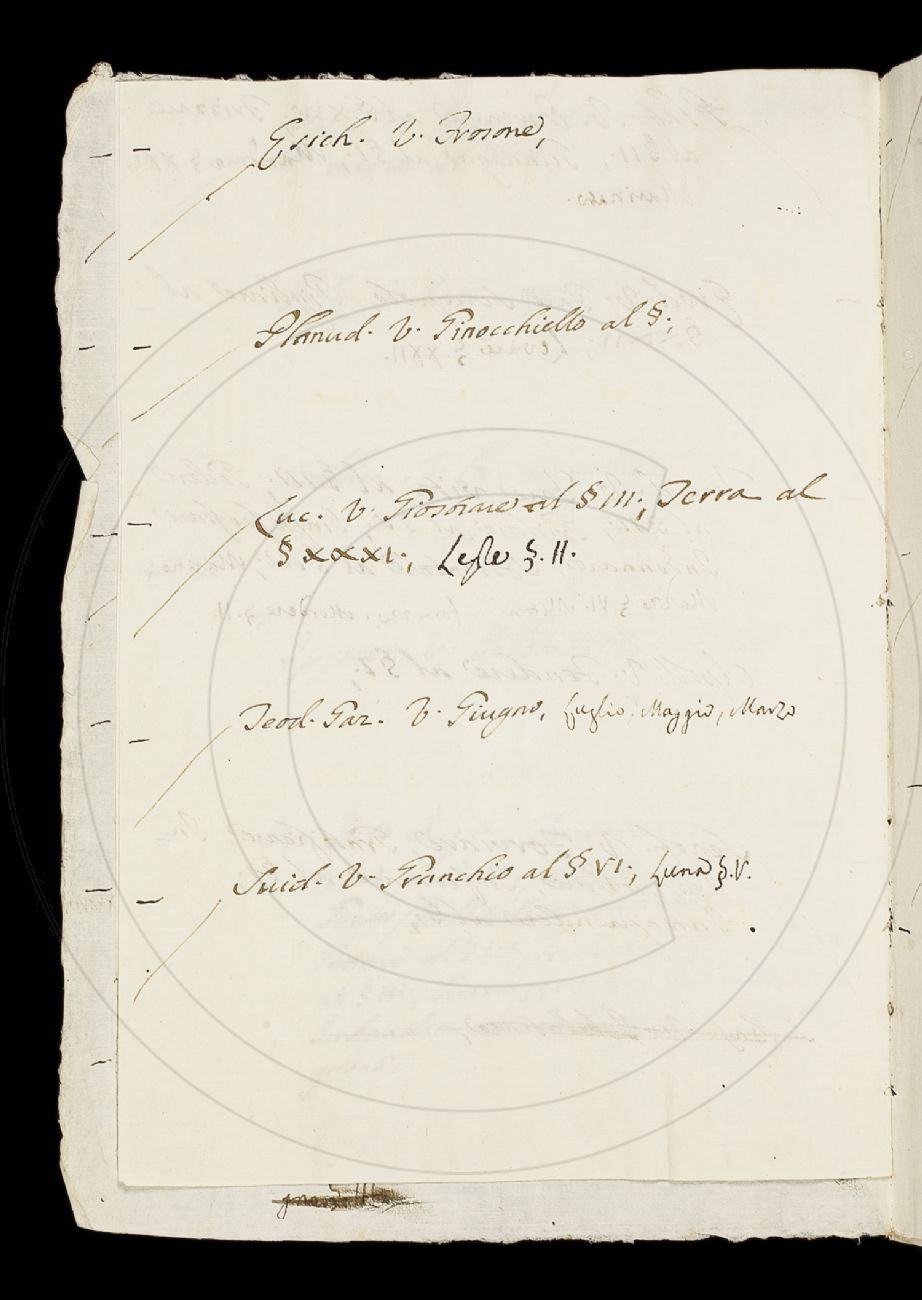 Esich. V. Frosone,
Planud. V. Pinocchiello al §;
Luc. V. al § III; Terra al
§ XXXI; §. II.
Teod. Gaz. V. Giugno, Luglio, Maggio, Marzo
Suid. V. Granchio al § VI; Luna §. V.